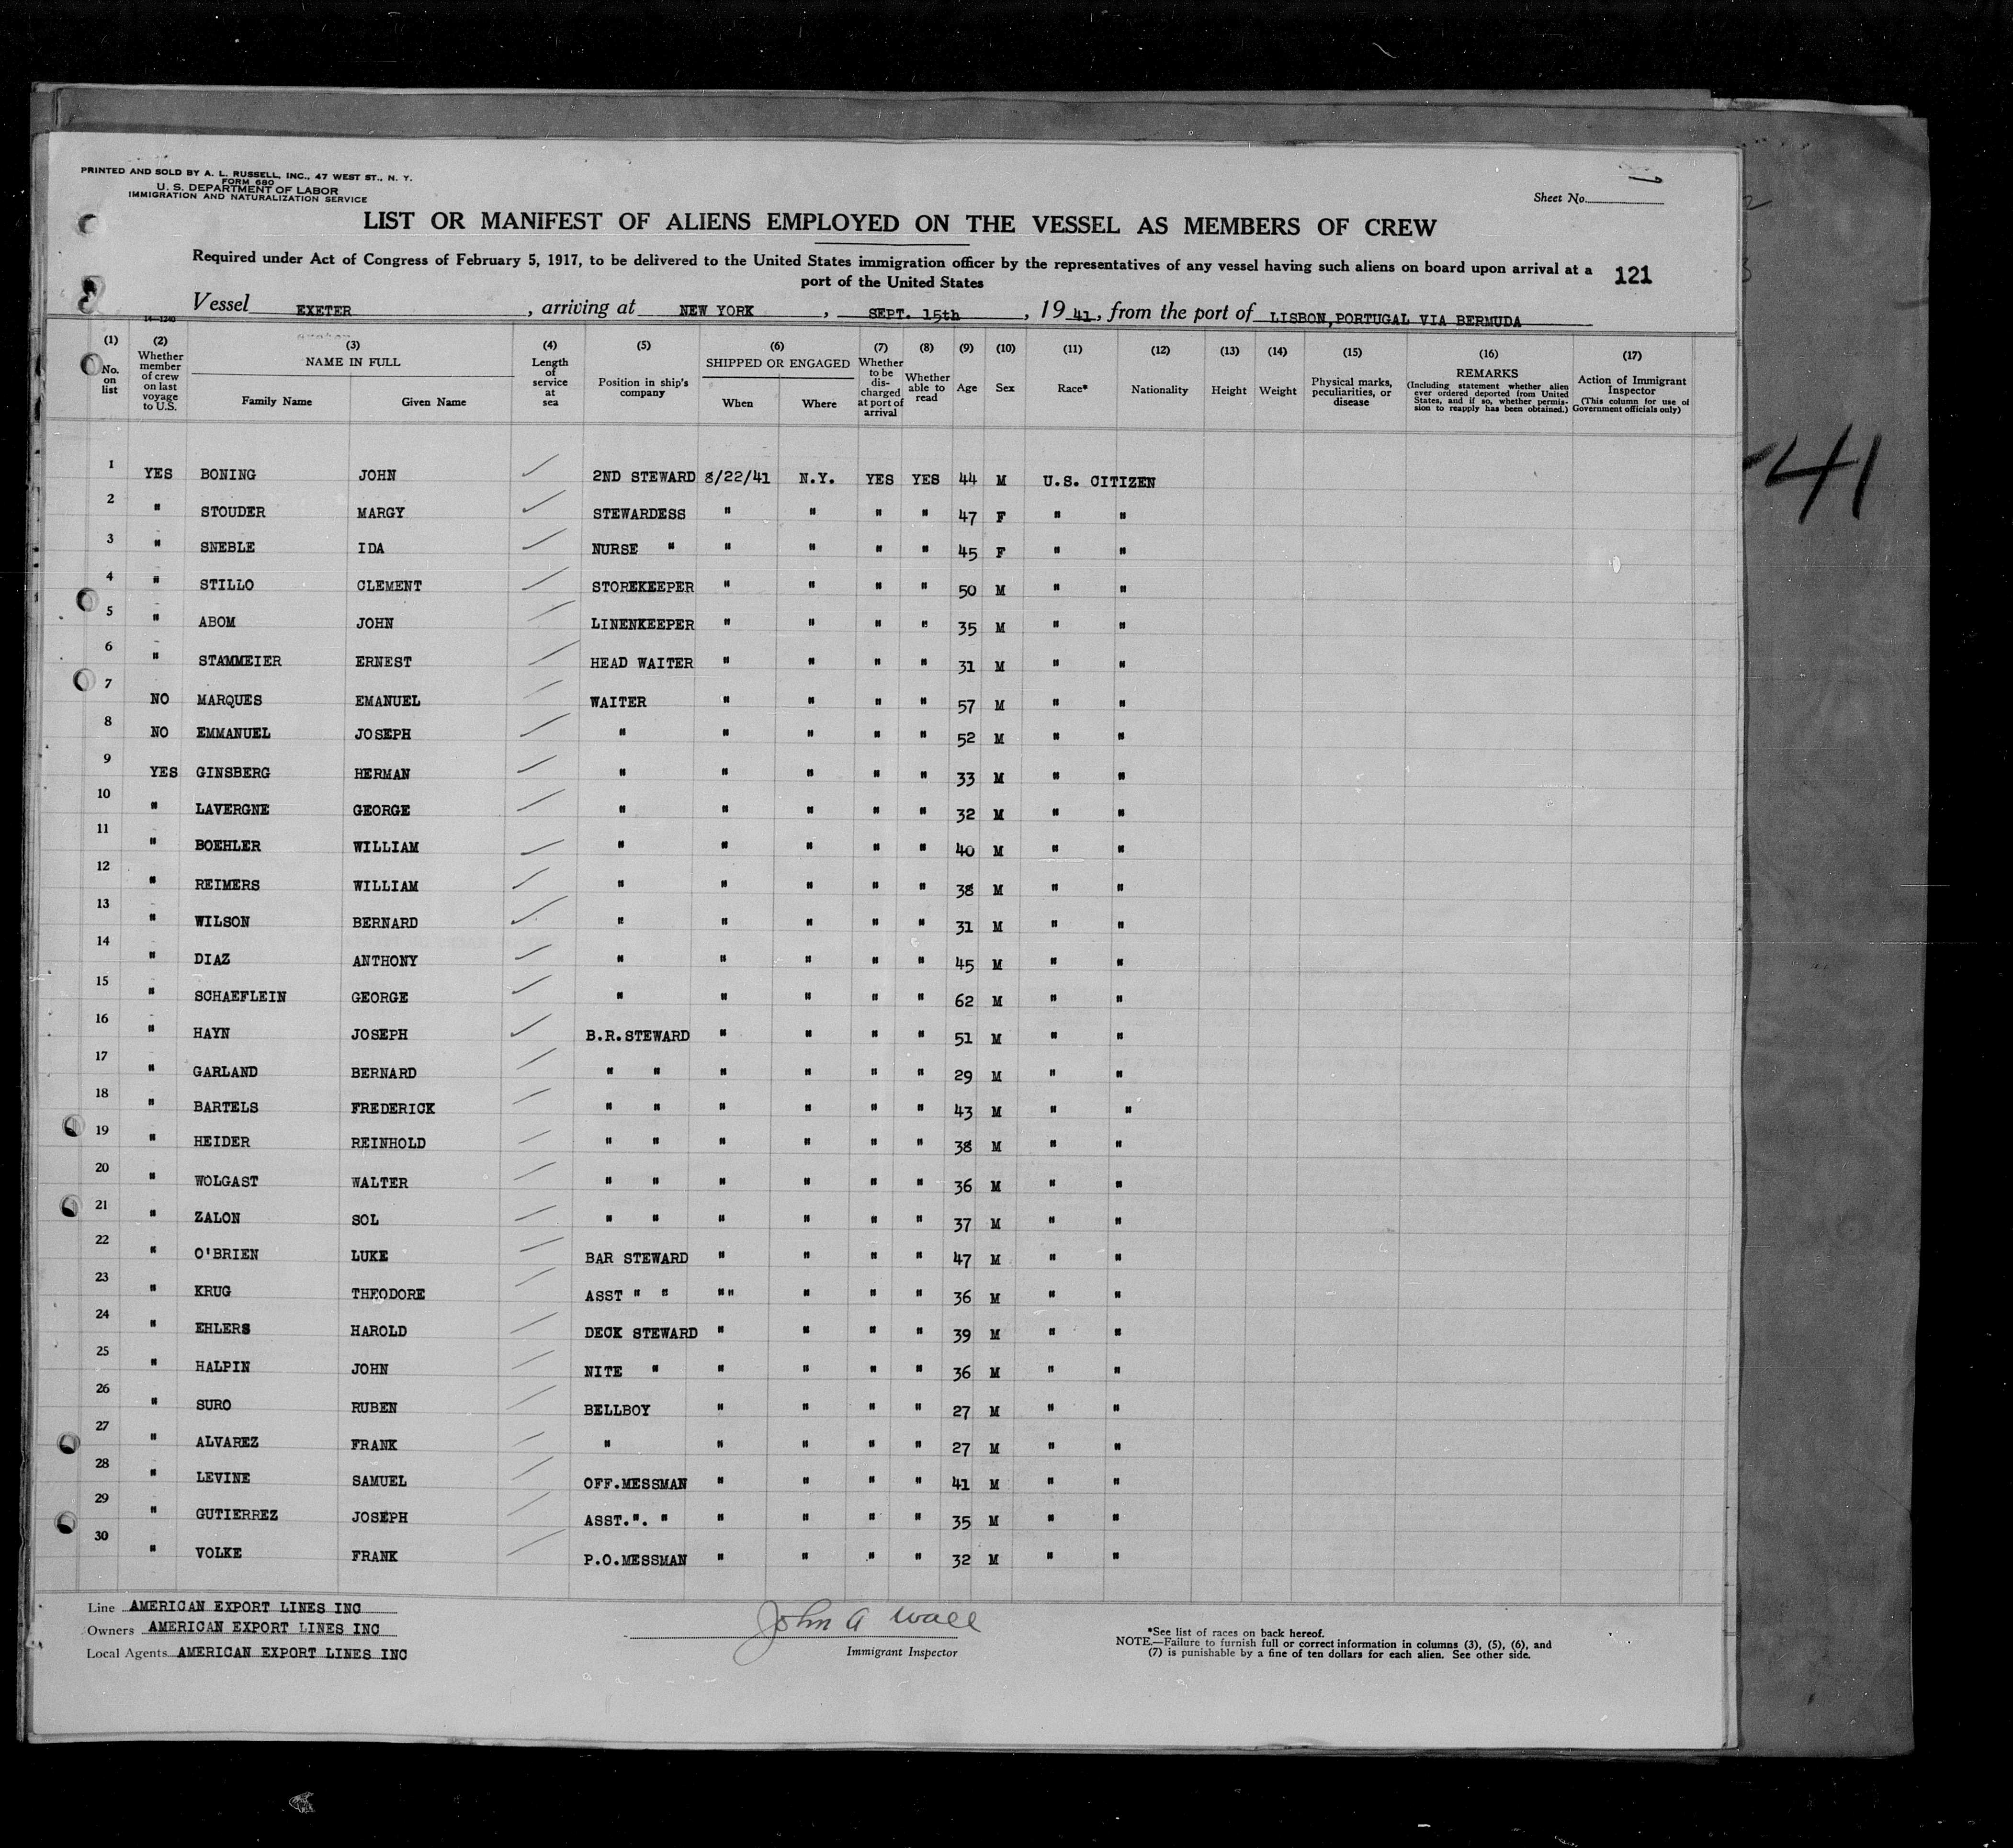 PRINTED AND SOLD BY A. L. RUSSELL, INC., 47 WEST ST., N. Y.
FORM 680
U. S. DEPARTMENT OF LABOR
IMMIGRATION AND NATURALIZATION SERVICE
Sheet No.
LIST OR MANIFEST OF ALIENS EMPLOYED ON THE VESSEL AS MEMBERS OF CREW
Required under Act of Congress of February 5, 1917, to be delivered to the United States immigration officer by the representatives of any vessel having such aliens on board upon arrival at a
port of the United States
121
Vessel EXETER, arriving at NEW YORK, SEPT. 15th, 1941, from the port of LISBON,PORTUGAL VIA BERMUDA
14—1240
(1) No. on list
(2) Whether member of crew on last voyage to U.S.
(3) NAME IN FULL Family Name Given Name
(4) Length of service at sea
(5) Position in ship's company
(6) SHIPPED OR ENGAGED When Where
(7) Whether to be dis-charged at port of arrival
(8) Whether able to read
(9) Age
(10) Sex
(11) Race*
(12) Nationality
(13) Height
(14) Weight
(15) Physical marks, peculiarities, or disease
(16) REMARKS (Including statement whether alien ever ordered deported from United States, and if so, whether permis-sion to reapply has been obtained.)
(17) Action of Immigrant Inspector (This column for use of Government officials only)
1 YES BONING JOHN 2ND STEWARD 8/22/41 N.Y. YES YES 44 M U.S. CITIZEN
2 " STOUDER MARGY STEWARDESS " " " " 47 F " "
3 " SNEBLE IDA NURSE " " " " " 45 F " "
4 " STILLO CLEMENT STOREKEEPER " " " " 50 M " "
5 " ABOM JOHN LINENKEEPER " " " " 35 M " "
6 " STAMMEIER ERNEST HEAD WAITER " " " " 31 M " "
7 NO MARQUES EMANUEL WAITER " " " " 57 M " "
8 NO EMMANUEL JOSEPH " " " " " 52 M " "
9 YES GINSBERG HERMAN " " " " " 33 M " "
10 " LAVERGNE GEORGE " " " " " 32 M " "
11 " BOEHLER WILLIAM " " " " " 40 M " "
12 " REIMERS WILLIAM " " " " " 38 M " "
13 " WILSON BERNARD " " " " " 31 M " "
14 " DIAZ ANTHONY " " " " " 45 M " "
15 " SCHAEFLEIN GEORGE " " " " " 62 M " "
16 " HAYN JOSEPH B.R.STEWARD " " " " 51 M " "
17 " GARLAND BERNARD " " " " " " 29 M " "
18 " BARTELS FREDERICK " " " " " " 43 M " "
19 " HEIDER REINHOLD " " " " " " 38 M " "
20 " WOLGAST WALTER " " " " " " 36 M " "
21 " ZALON SOL " " " " " " 37 M " "
22 " O'BRIEN LUKE BAR STEWARD " " " " 47 M " "
23 " KRUG THEODORE ASST " " "" " " " 36 M " "
24 " EHLERS HAROLD DECK STEWARD " " " " 39 M " "
25 " HALPIN JOHN NITE " " " " " 36 M " "
26 " SURO RUBEN BELLBOY " " " " 27 M " "
27 " ALVAREZ FRANK " " " " " 27 M " "
28 " LEVINE SAMUEL OFF.MESSMAN " " " " 41 M " "
29 " GUTIERREZ JOSEPH ASST.". " " " " " 35 M " "
30 " VOLKE FRANK P.O.MESSMAN " " " " 32 M " "
Line AMERICAN EXPORT LINES INC
Owners AMERICAN EXPORT LINES INC
Local Agents AMERICAN EXPORT LINES INC
John A Wall
Immigrant Inspector
*See list of races on back hereof.
NOTE.—Failure to furnish full or correct information in columns (3), (5), (6), and
(7) is punishable by a fine of ten dollars for each alien. See other side.
41